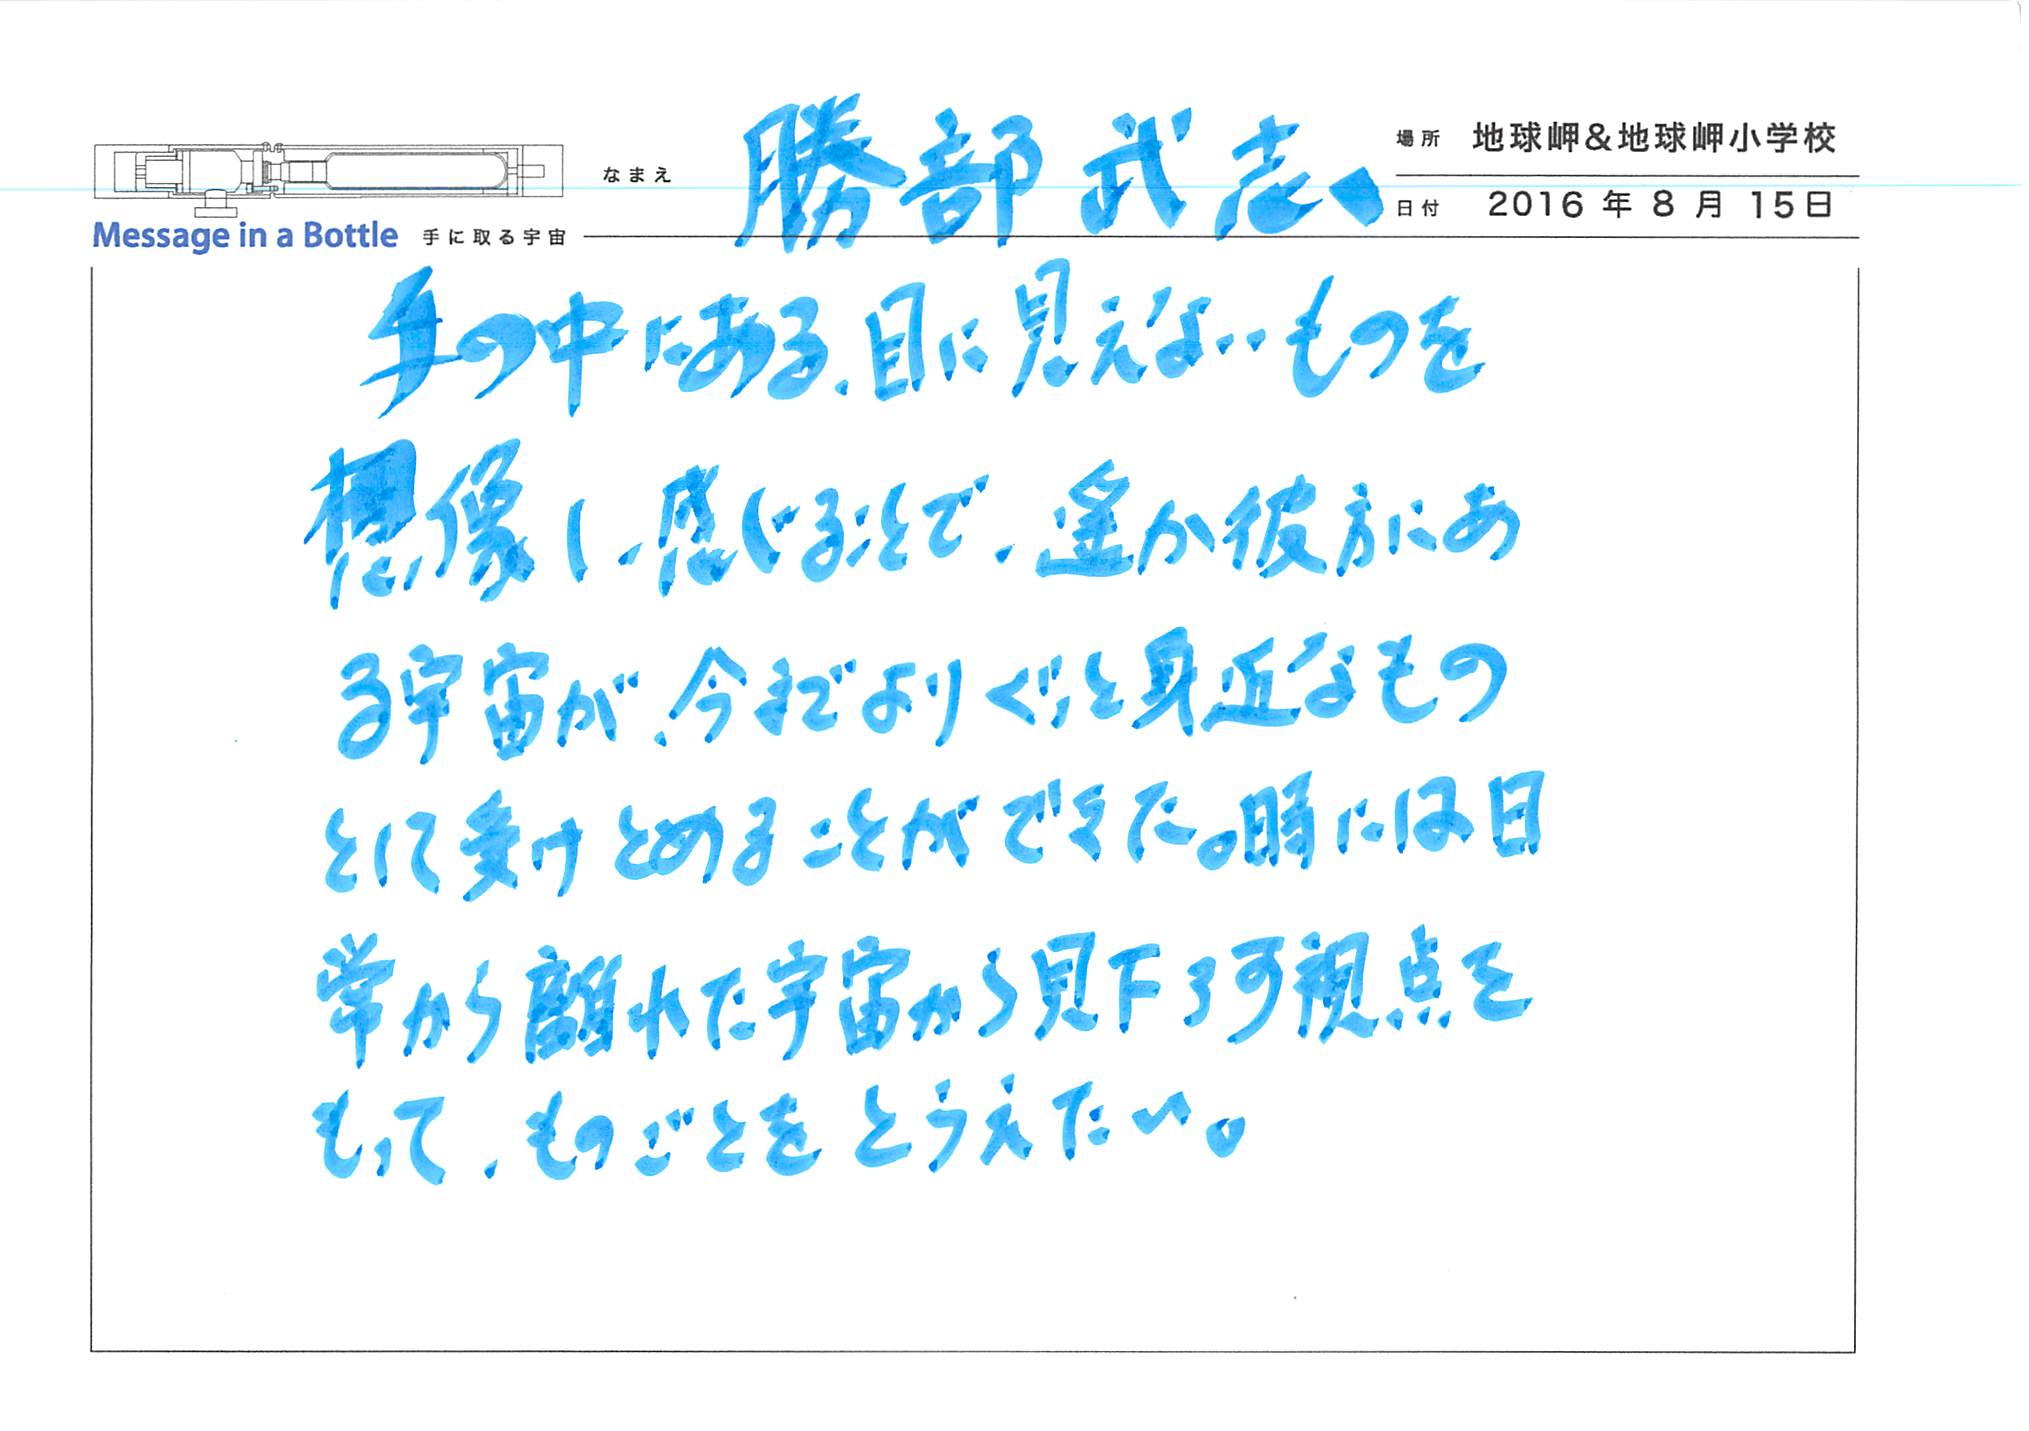 なまえ 勝部武志
場所 地球岬&地球岬小学校
日付 2016年8月15日
Message in a Bottle 手に取る宇宙
手の中にある、目に見えないものを
想像し、感じることで、遥か彼方にあ
る宇宙が、今までよりぐっと身近なもの
として受けとめることができた。時には日
常から離れた宇宙から見下ろす視点を
もって、ものごとをとらえたい。